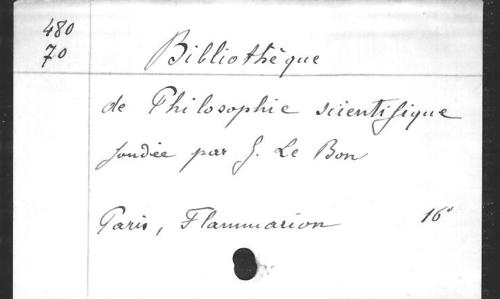 480
70
Bibliothèque
de Philosophie scientifique
fondée par G. Le Bon
Paris, Flammarion 16°